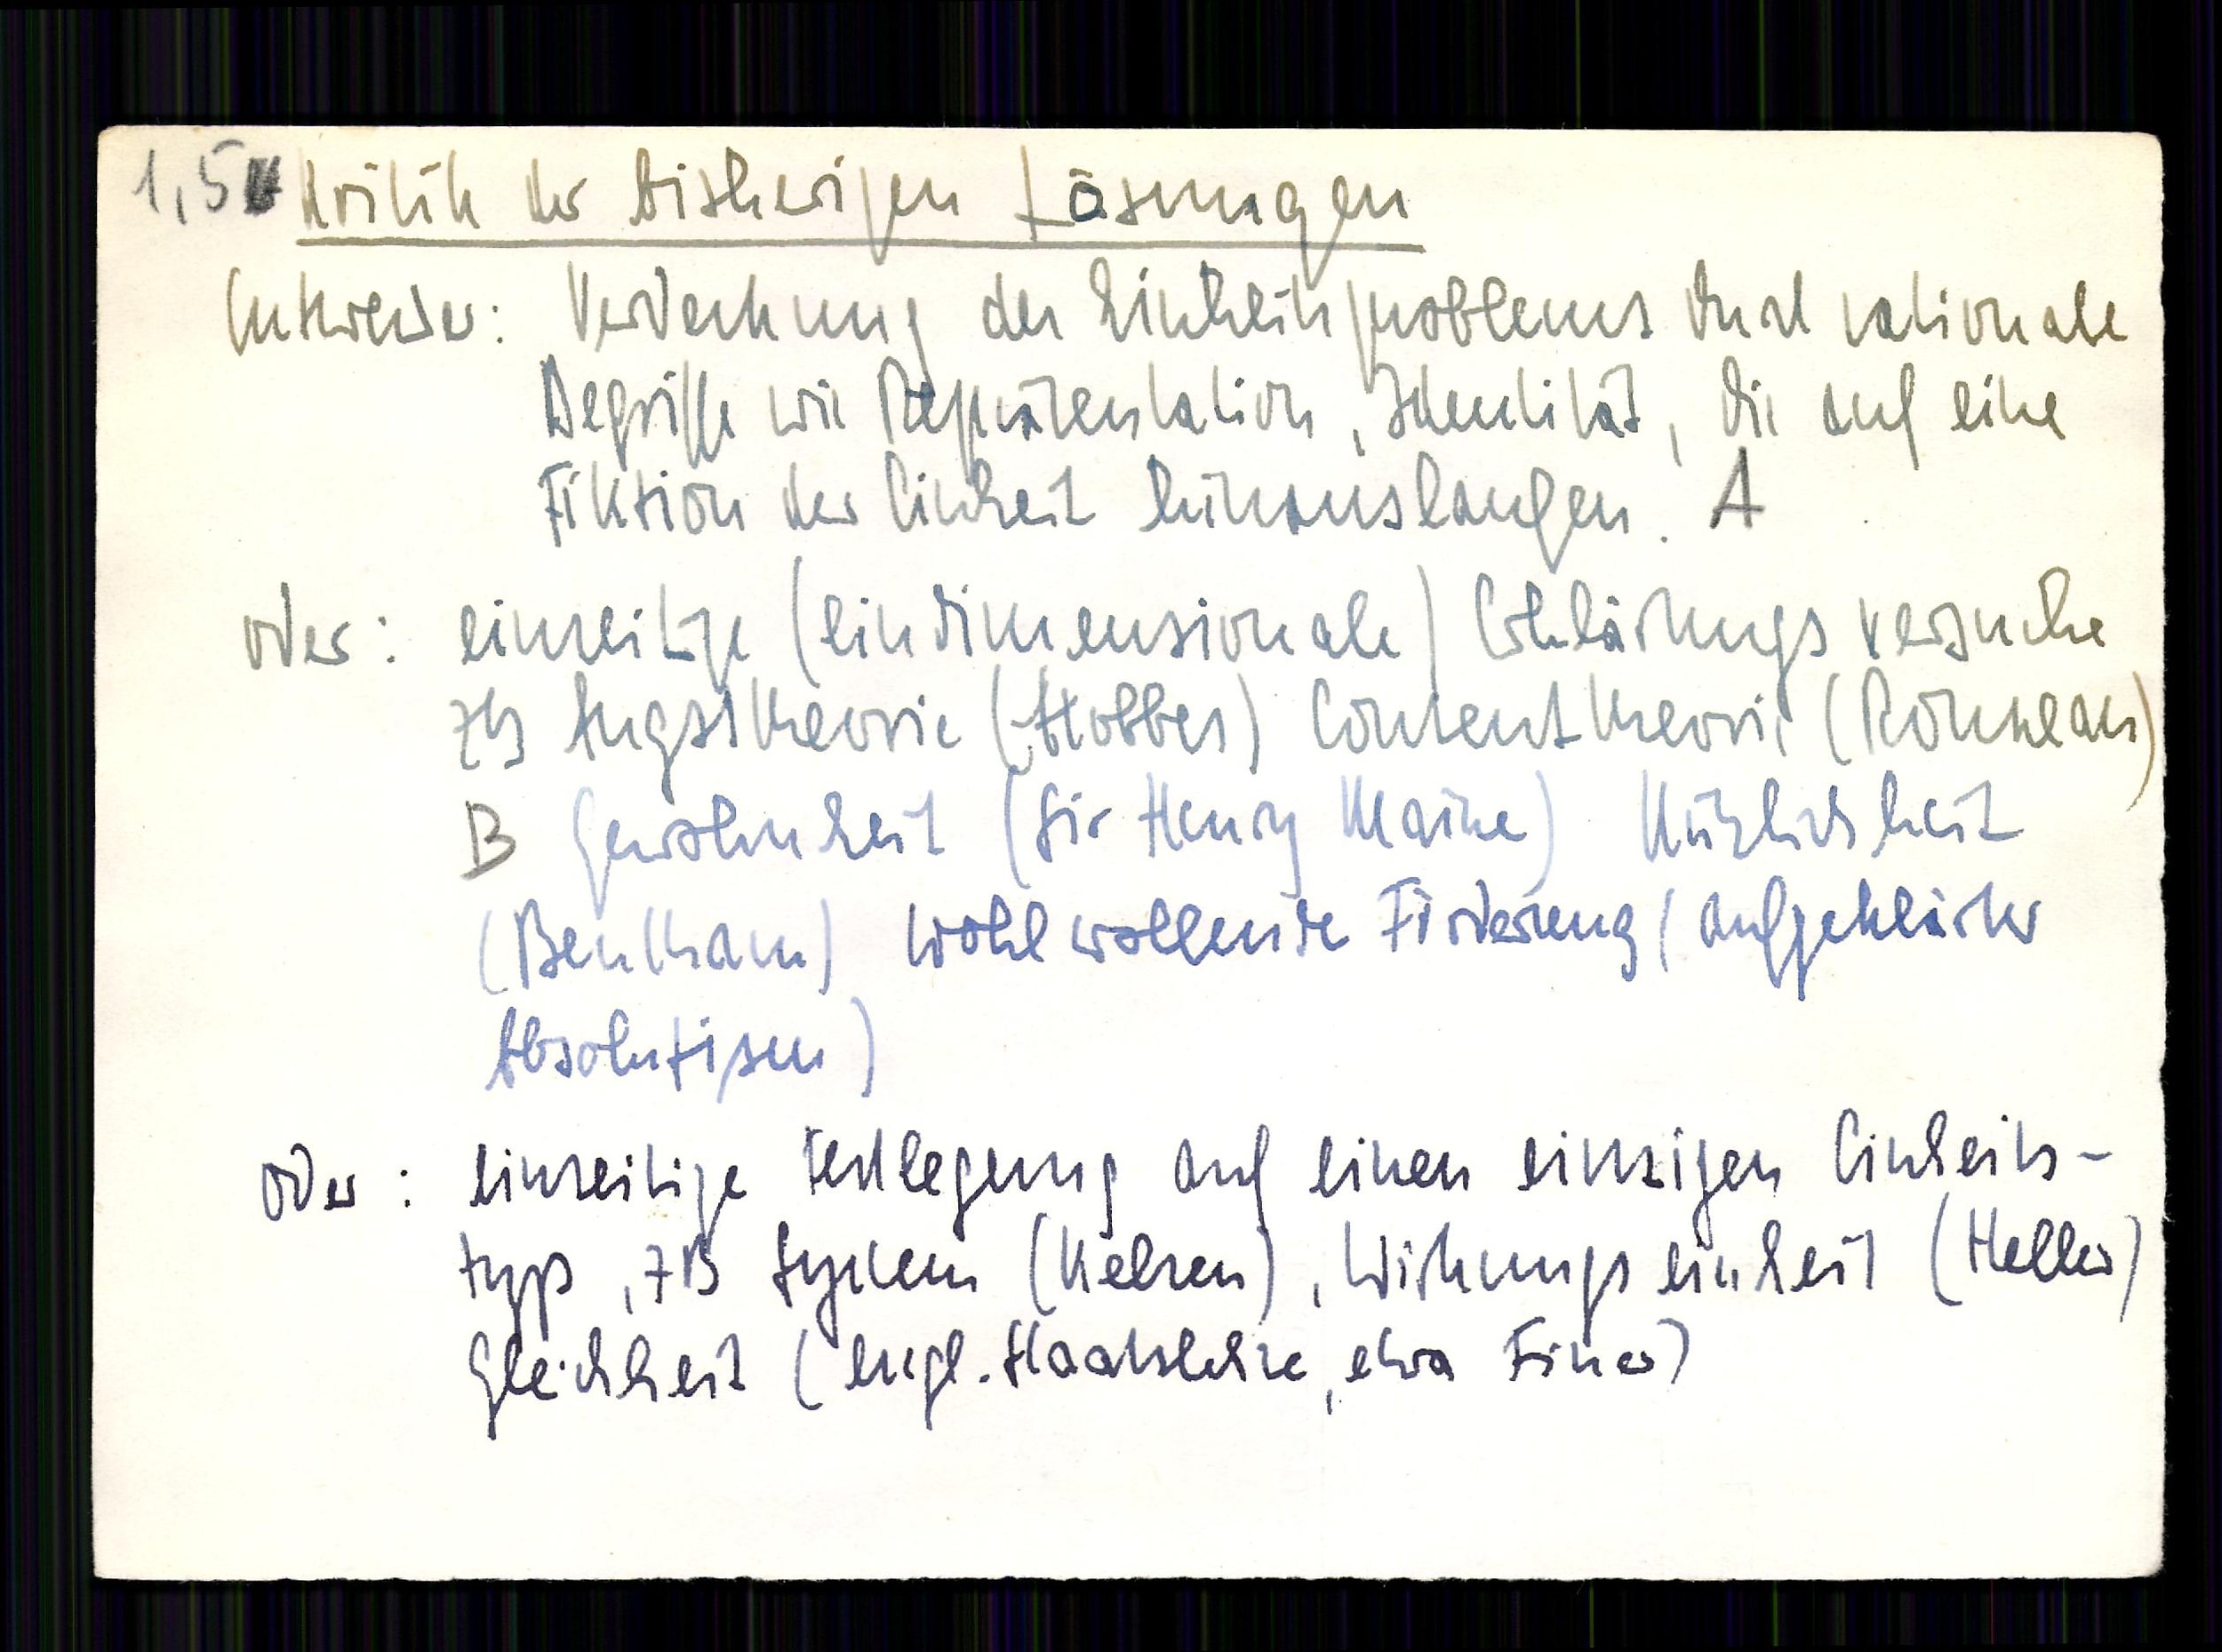 1,5 Kritik der bisherigen Lösungen
Entweder: Verdeckung des Einheitsproblems durch rationale
Begriffe wie Repräsentation, Identität, die auf eine
Fiktion der Einheit hinauslaufen. A
oder: einseitige (eindimensionale) Erklärungsversuche
zB Angsttheorie (Hobbes) Consenttheorie (Rousseau)
B Gewohnheit (Sir Henry Maine) Nützlichkeit
(Bentham) wohlwollende Förderung (aufgeklärter
Absolutismus)
oder: einseitige Festlegung auf einen einzigen Einheits-
typs, zB System (Kelsen), Wirkungseinheit (Heller)
Gleichheit (engl. Staatslehre, etwa Finer)